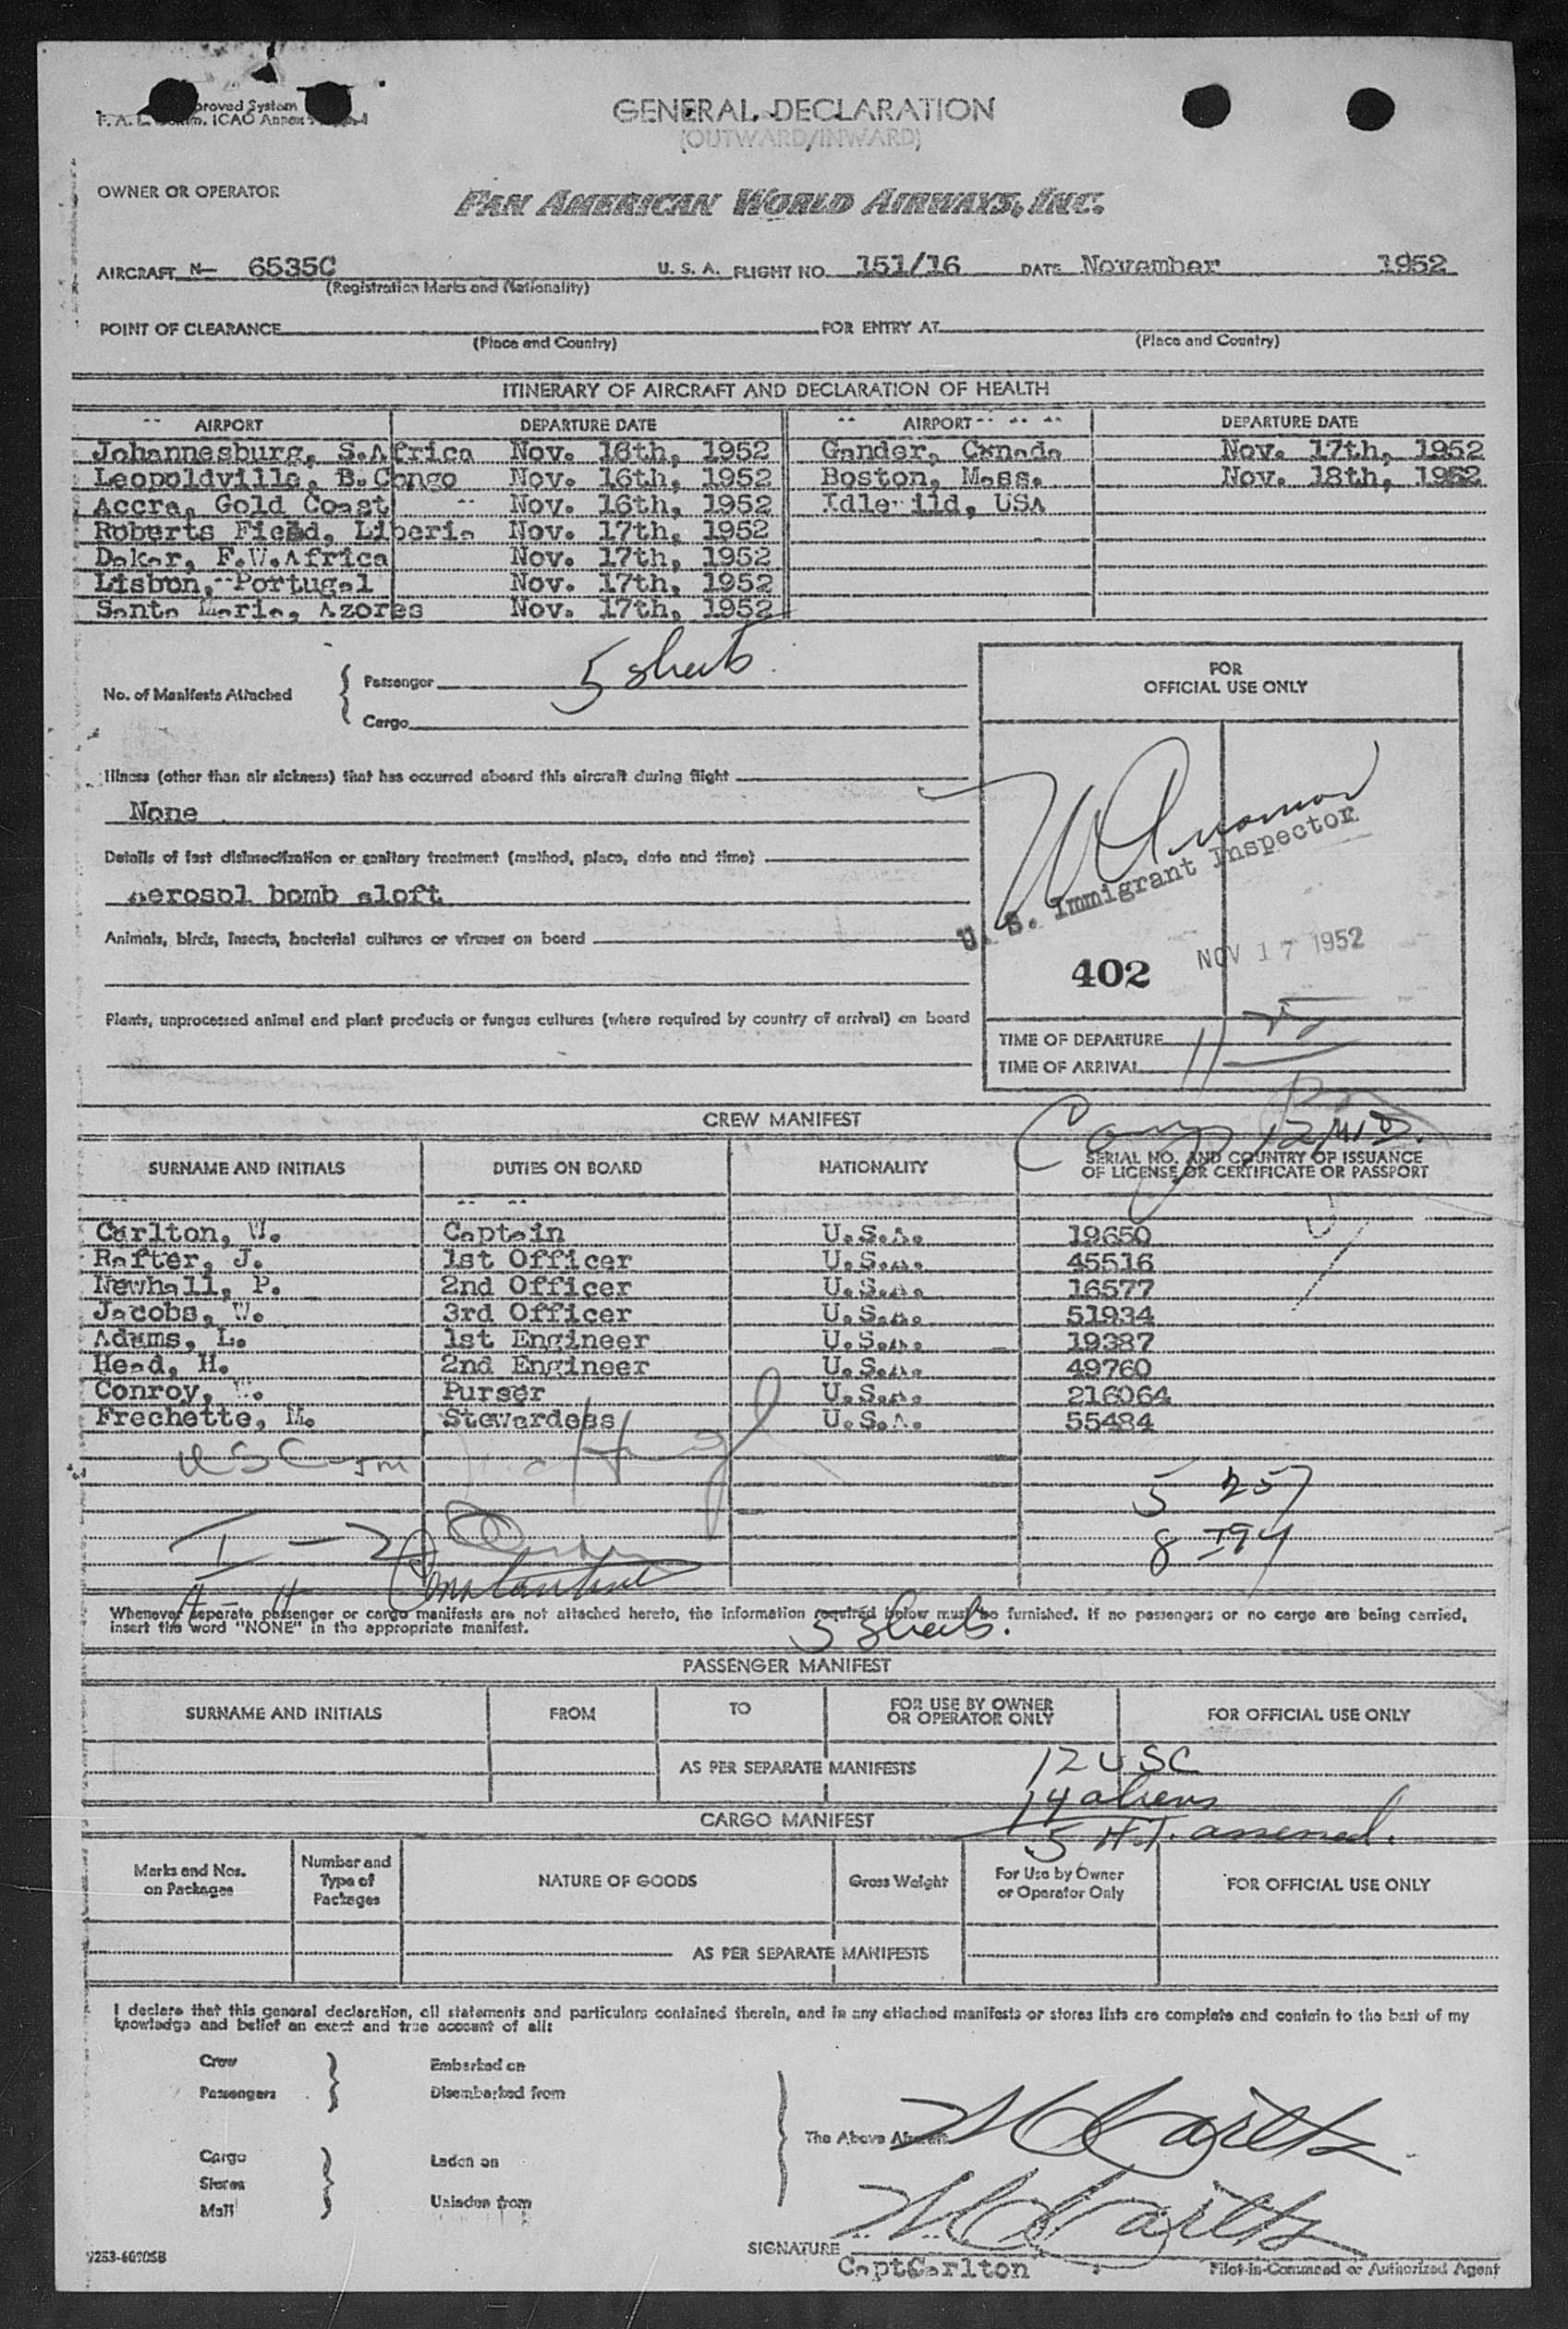 GENERAL DECLARATION
(OUTWARD/INWARD)
OWNER OR OPERATOR PAN AMERICAN WORLD AIRWAYS, INC.
AIRCRAFT N— 6535C U. S. A. FLIGHT NO. 151/16 DATE November 1952
(Registration Marks and Nationality)
POINT OF CLEARANCE FOR ENTRY AT
(Place and Country) (Place and Country)
ITINERARY OF AIRCRAFT AND DECLARATION OF HEALTH
AIRPORT DEPARTURE DATE AIRPORT DEPARTURE DATE
Johannesburg, S.Africa Nov. 16th, 1952 Gander, Canada Nov. 17th, 1952
Leopoldville, B.Congo Nov. 16th, 1952 Boston, Mass. Nov. 18th, 1952
Accra, Gold Coast Nov. 16th, 1952 Idlewild, USA
Roberts Field, Liberia Nov. 17th, 1952
Dakar, F.W.Africa Nov. 17th, 1952
Lisbon, Portugal Nov. 17th, 1952
Santa Maria, Azores Nov. 17th, 1952
No. of Manifests Attached
Passenger 5 sheets
Cargo
FOR
OFFICIAL USE ONLY
Illness (other than air sickness) that has occurred aboard this aircraft during flight
None
Details of last disinsectization or sanitary treatment (method, place, date and time)
aerosol bomb aloft
U. S. Immigrant Inspector
Animals, birds, insects, bacterial cultures or viruses on board
402 NOV 17 1952
Plants, unprocessed animal and plant products or fungus cultures (where required by country of arrival) on board
TIME OF DEPARTURE
TIME OF ARRIVAL 11
CREW MANIFEST
SURNAME AND INITIALS DUTIES ON BOARD NATIONALITY SERIAL NO. AND COUNTRY OF ISSUANCE
OF LICENSE OR CERTIFICATE OR PASSPORT
Carlton, W. Captain U.S.A. 19650
Rafter, J. 1st Officer U.S.A. 45516
Newhall, P. 2nd Officer U.S.A. 16577
Jacobs, W. 3rd Officer U.S.A. 51934
Adams, L. 1st Engineer U.S.A. 19387
Head, H. 2nd Engineer U.S.A. 49760
Conroy, Purser U.S.A. 216064
Frechette, M. Stewardess U.S.A. 55484
USC
5 257
8 I94
Constantine
Whenever separate passenger or cargo manifests are not attached hereto, the information required below must be furnished. If no passengers or no cargo are being carried,
insert the word "NONE" in the appropriate manifest.
5 sheets.
PASSENGER MANIFEST
SURNAME AND INITIALS FROM TO FOR USE BY OWNER
OR OPERATOR ONLY FOR OFFICIAL USE ONLY
AS PER SEPARATE MANIFESTS 12 USC
14 aliens
CARGO MANIFEST
5 H.T. assessed.
Marks and Nos.
on Packages Number and
Type of
Packages NATURE OF GOODS Gross Weight For Use by Owner
or Operator Only FOR OFFICIAL USE ONLY
AS PER SEPARATE MANIFESTS
I declare that this general declaration, all statements and particulars contained therein, and in any attached manifests or stores lists are complete and contain to the best of my
knowledge and belief an exact and true account of all:
Crew Embarked on
Passengers Disembarked from
The Above Aircraft
Cargo Laden on
Stores
Mail Unladen from
SIGNATURE
Capt Carlton Pilot-in-Command or Authorized Agent